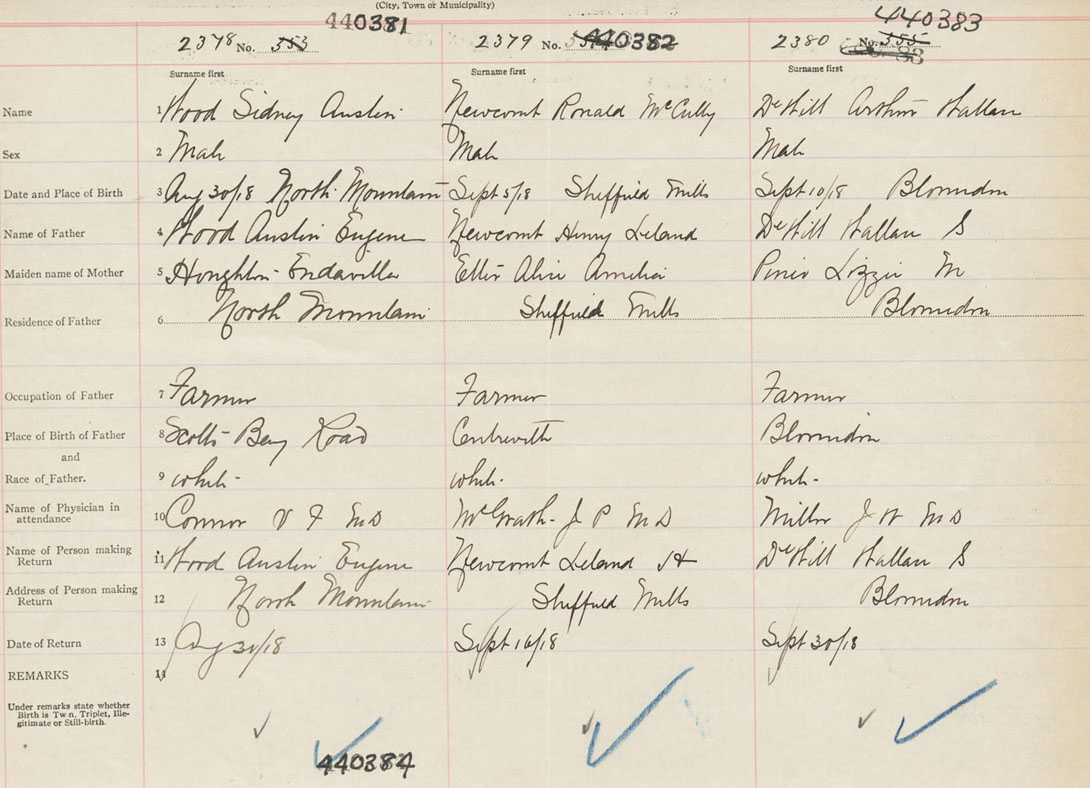 (City, Town or Municipality)
440381 440383
2378 No. 353 2379 No. 440382 2380 No. 355
Surname first Surname first Surname first
Name 1 Wood Sidney Austin Newcomb Ronald McCully DeWitt Arthur Wallace
Sex 2 Male Male Male
Date and Place of Birth 3 Aug 30/18 North Mountain Sept 5/18 Sheffield Mills Sept 10/18 Blomidon
Name of Father 4 Wood Austin Eugene Newcomb Henry Leland DeWitt Wallace S
Maiden name of Mother 5 Houghton Endavilla Alice Amelia Lizzie M
Residence of Father 6 North Mountain Sheffield Mills Blomidon
Occupation of Father 7 Farmer Farmer Farmer
Place of Birth of Father 8 Scotts Bay Road Centreville Blomidon
and
Race of Father. 9 white white white
Name of Physician in
attendance 10 Connor V F MD McGrath J P MD Miller J W MD
Name of Person making
Return 11 Wood Austin Eugene Newcomb Leland H DeWitt Wallace S
Address of Person making
Return 12 North Mountain Sheffield Mills Blomidon
Date of Return 13 Aug 30/18 Sept 16/18 Sept 30/18
REMARKS 14
Under remarks state whether
Birth is Twin, Triplet, Ille-
gitimate or Still-birth.
440384